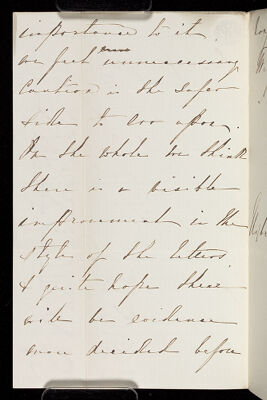 importance to it
we feel unnecessary
Caution is the safer
side to err upon.
On the whole we think
there is a visible
improvement in the
style of the letters
& quite hope there
will be evidence
more decided before